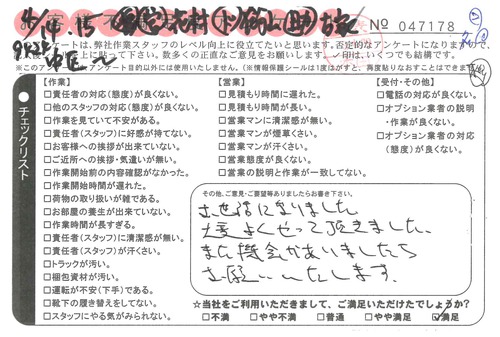 4/14.15
№ 047178
アンケートは、弊社作業スタッフのレベル向上に役立てたいと思います。否定的なアンケートになりますので、
に貼って下さい。数多くの正直なご意見をお願いします。✓印は、いくつでも結構です。
※このアンケート目的以外には使用いたしません。(※情報保護シールは1度はがすと、再度貼りなおすことはできま
チェックリスト
【作業】
□責任者の対応(態度)が良くない。
□他のスタッフの対応(態度)が良くない。
□作業を見ていて不安がある。
□責任者(スタッフ)に好感が持てない。
□お客様への挨拶が出来ていない。
□ご近所への挨拶・気遣いが無い。
□作業開始前の内容確認がなかった。
□作業開始時間が遅れた。
□荷物の取り扱いが雑である。
□お部屋の養生が出来ていない。
□作業時間が長すぎる。
□責任者(スタッフ)に清潔感が無い。
□責任者(スタッフ)が汗くさい。
□トラックが汚い。
□梱包資材が汚い。
□運転が不安(下手)である。
□靴下の履き替えをしてない。
□スタッフにやる気がみられない。
【営業】
□見積もり時間に遅れた。
□見積もり時間が長い。
□営業マンに清潔感が無い。
□営業マンが煙草くさい。
□営業マンが汗くさい。
□営業態度が良くない。
□営業の説明と作業が一致してない。
【受付・その他】
□電話の対応が良くない。
□オプション業者の説明
・作業が良くない。
□オプション業者の対応
(態度)が良くない。
その他、ご意見・ご要望等ありましたらお書き下さい。
お世話になりました
大変よくやって頂きました。
また機会がありましたら
お願いいたします。
☆当社をご利用いただきまして、ご満足いただけたでしょうか?
□不満 □やや不満 □普通 □やや満足 ☑満足